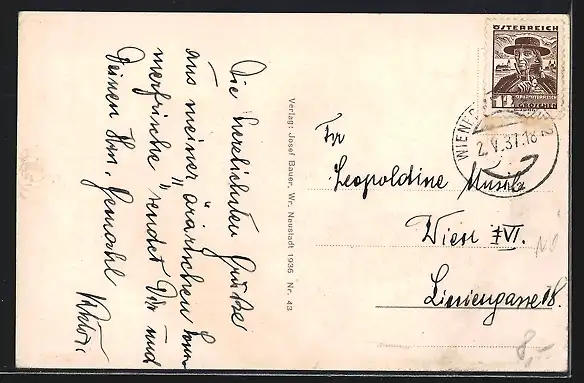 Die herzlichsten Grüße
aus meiner "ärarischen Som-
merfrische" sendet Dir und
Deinem Hrn. Gemahl
Viktor
Verlag: Josef Bauer, Wr. Neustadt 1936 Nr. 43
ÖSTERREICH
GROSCHEN
WIENER
2.V.37.18
Fr
Leopoldine Musil
Wien VI.
Liniengasse 18.
8,-